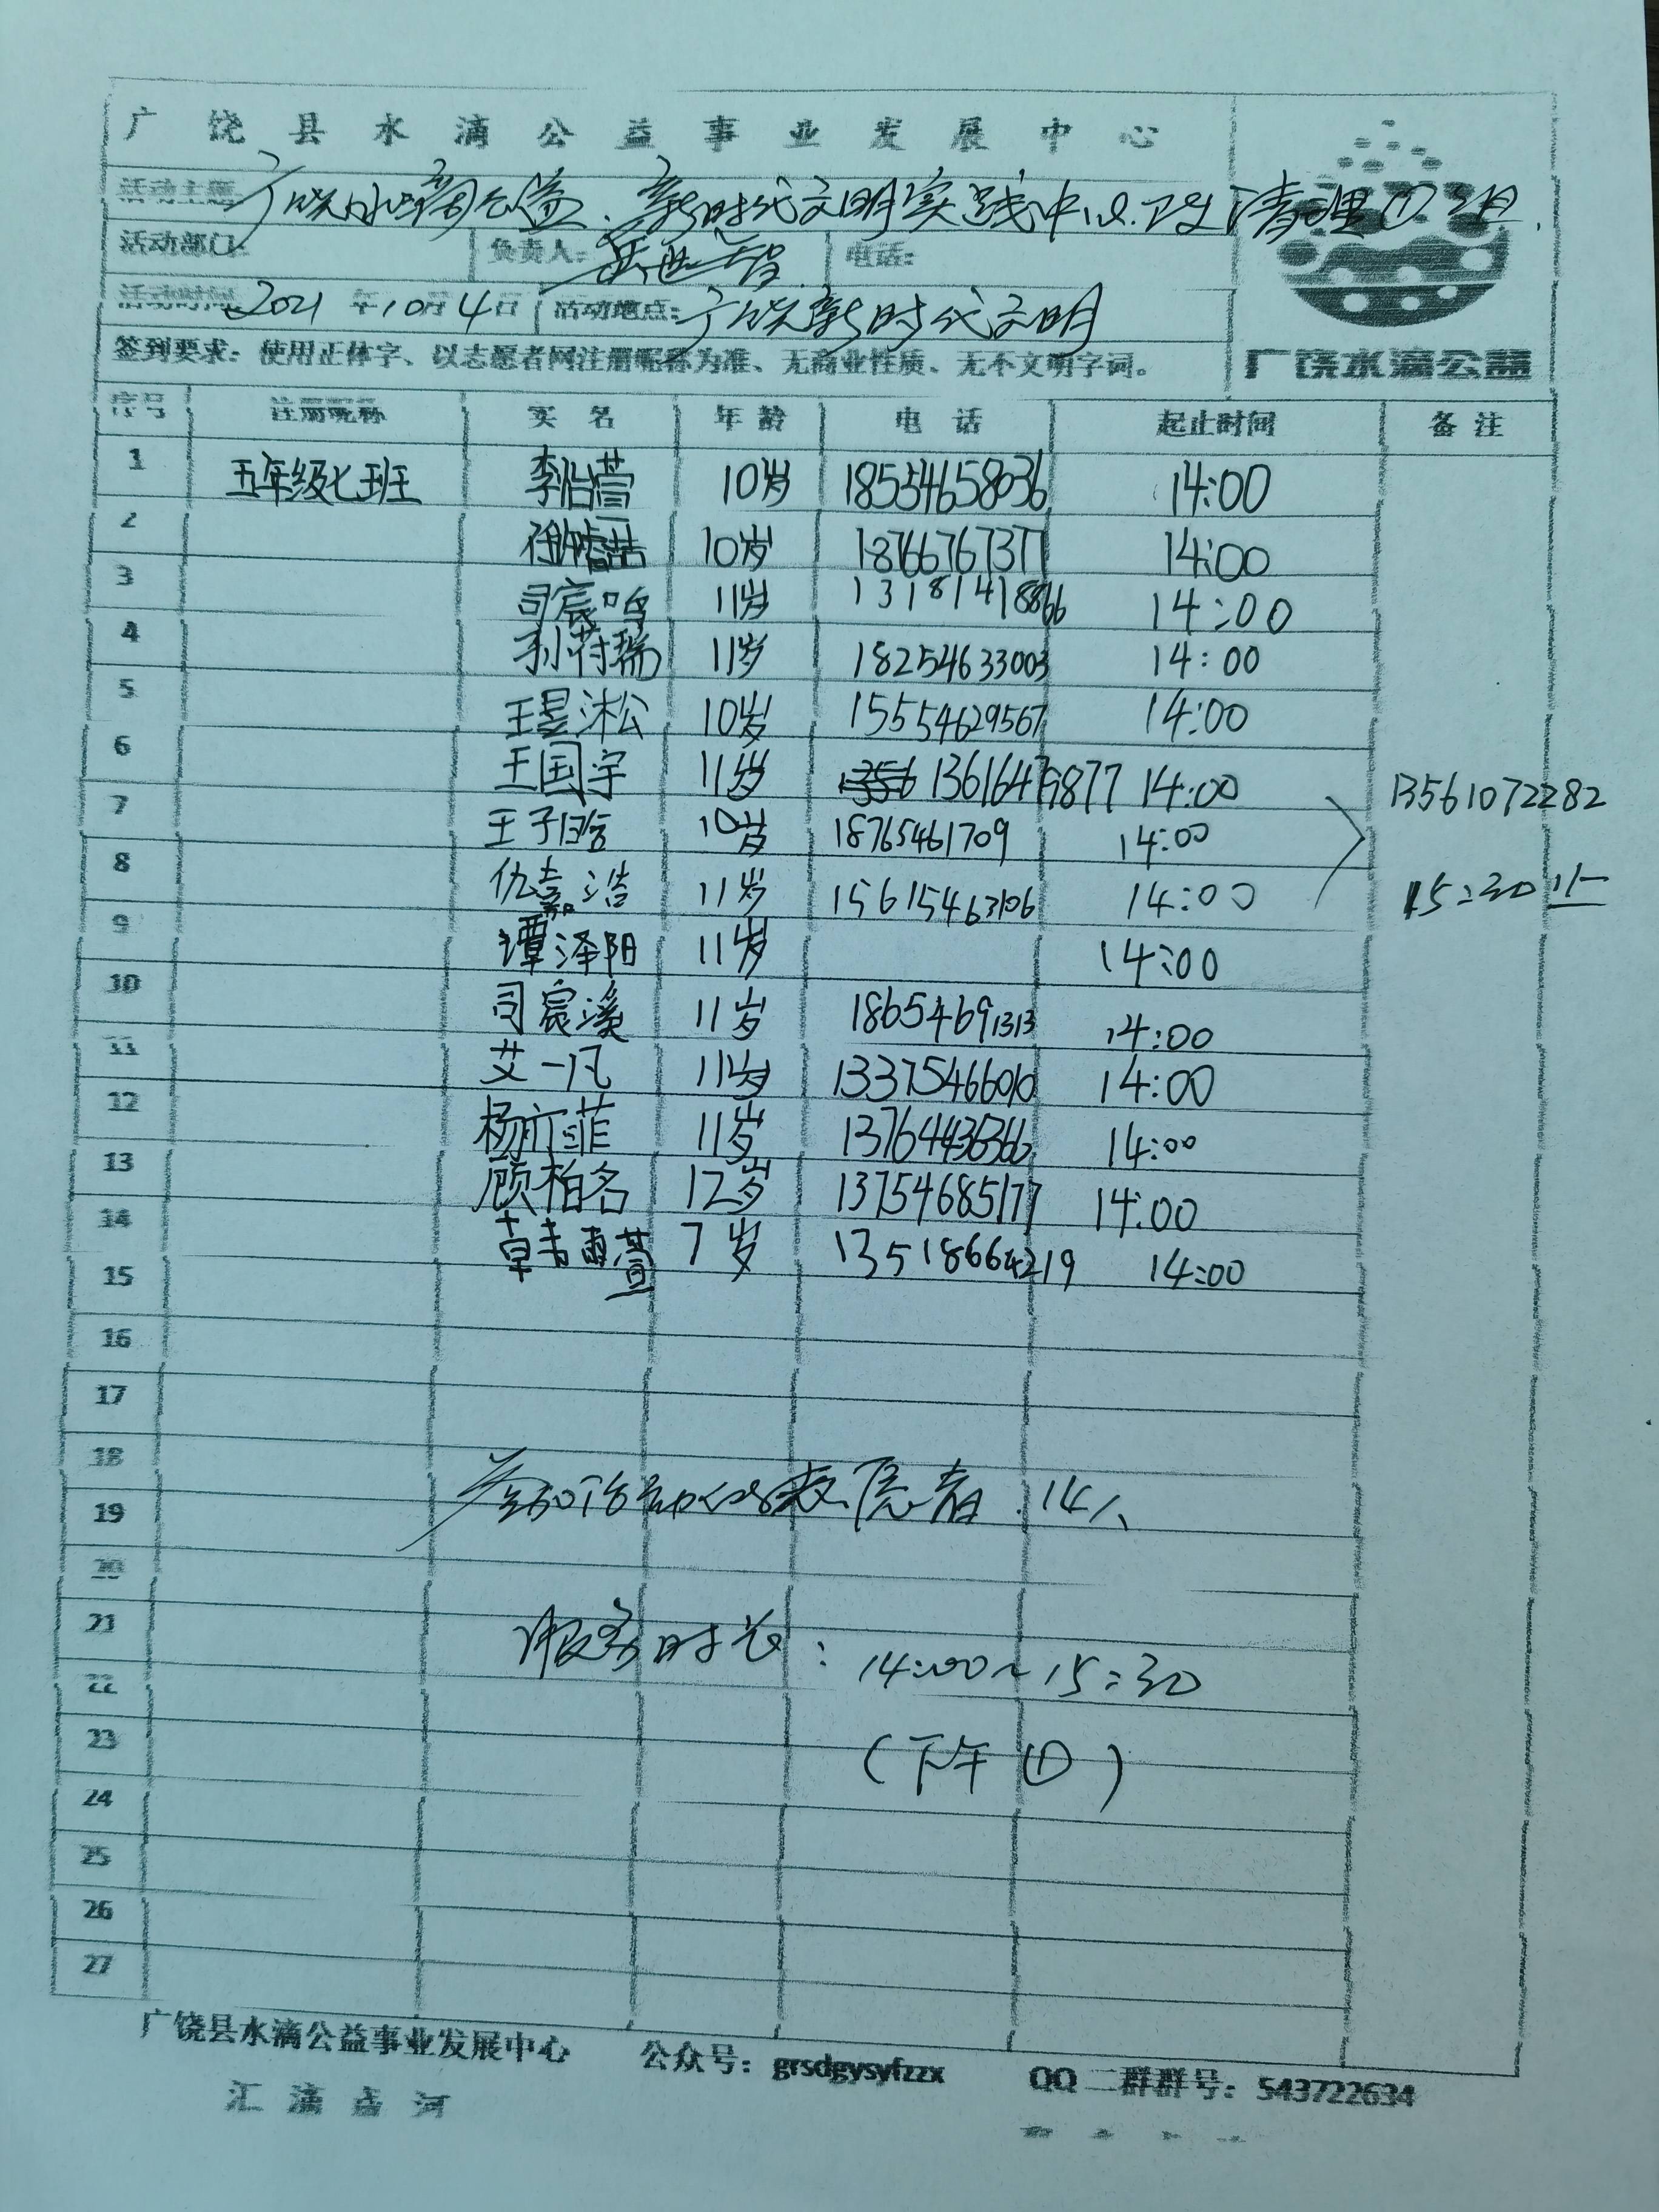 广饶县水滴公益事业发展中心
活动主题 广饶水滴公益.新时代文明实践中心.卫生清理①组.
活动部门: 负责人: 电话:
活动时间 2021年10月4日 活动地点: 广饶新时代文明
签到要求: 使用正体字、以志愿者网注册昵称为准、无商业性质、无不文明字词。
广饶水滴公益
序号 注册昵称 实名 年龄 电话 起止时间 备注
1 五年级七班 李怡萱 10岁 18554658036 14:00
2 10岁 18766767377 14:00
3 司宸鸣 11岁 13181418866 14:00
4 孙符瑞 11岁 18254633003 14:00
5 王昱淞 10岁 15554629567 14:00
6 王国宇 11岁 13616479877 14:00 13561072282
7 王子晗 10岁 18765461709 14:00
8 仇嘉浩 11岁 15615463106 14:00 15:30止
9 谭泽阳 11岁 14:00
10 司宸溪 11岁 18654691313 14:00
11 艾一凡 11岁 13375466010 14:00
12 杨亦菲 11岁 13764436366 14:00
13 顾柏名 12岁 13754685177 14:00
14 韩雨萱 7岁 13518664219 14:00
15
16
17
18
19 参加活动的志愿者.14人
20
21 服务时长: 14:00~15:30
22
23 (下午①)
24
25
26
27
广饶县水滴公益事业发展中心 公众号: grsdgysyfzzx QQ二群群号: 543722634
汇滴成河